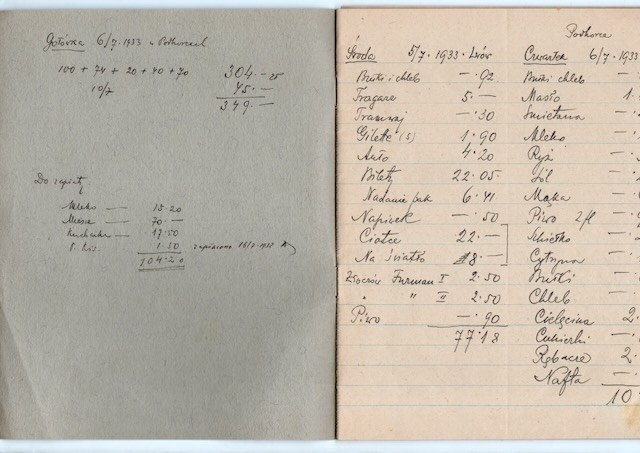 Gotówka 6/7.1933 w Podhorcach
100 + 74 + 20 + 40 + 70
304.—
45.—
349.—
10/7
Do zapłaty
Mleko — 15.20
Mięso — 70.—
Kucharka — 17.50
1.50 zapłacono 16/7.1933
104.20
Środa 5/7.1933. Lwów
Bułki i chleb —.92
Tragarz 5.—
Tramwaj —.30
Gilette (5) 1.90
Auto 4.20
Bilety 22.05
Nadanie pak 6.41
Napiwek —.50
Ciotce 22.—
Na światło 8.—
Złoczów Furman I 2.50
" " II 2.50
Piwo —.90
77.18
Podhorce
Czwartek 6/7.1933
Bułki chleb —.
Masło 1.
Śmietana —.
Mleko —.
Ryż —.
Sól —.
Mąka —.
Piwo 2 fl —.
Cytryna —.
Bułki —.
Chleb —.
Cielęcina 2.
Cukierki —.
Rąbacze 2.
Nafta —.
10.